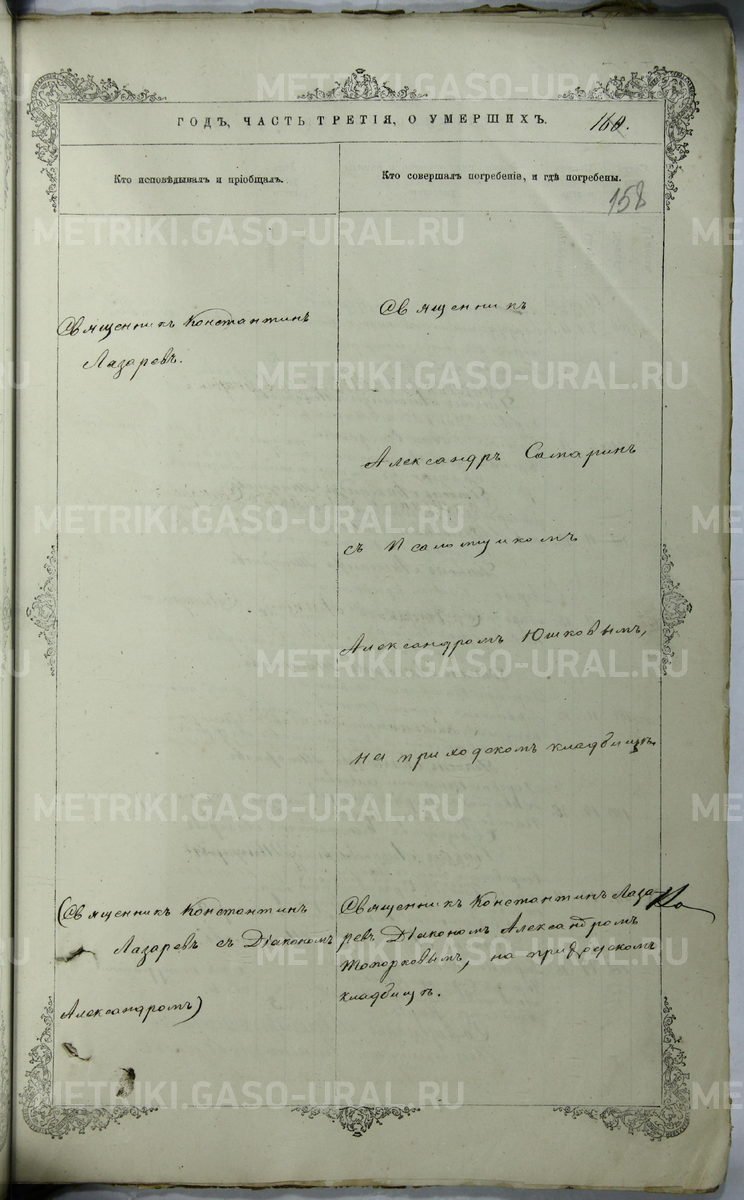 ГОДЪ, ЧАСТЬ ТРЕТІЯ, О УМЕРШИХЪ.
160.
Кто исповѣдывалъ и пріобщалъ.
Кто совершалъ погребеніе, и гдѣ погребены.
158
Священникъ Константинъ
Лазаревъ.
Священникъ
Александръ Самаринъ
съ Псаломщикомъ
Александромъ Юшковымъ,
на приходскомъ кладбищѣ.
(Священникъ Константинъ
Лазаревъ съ Діакономъ
Александромъ)
Священникъ Константинъ Лаза-
ревъ Діакономъ Александромъ
Топорковымъ, на приходскомъ
кладбищѣ.
METRIKI.GASO-URAL.RU